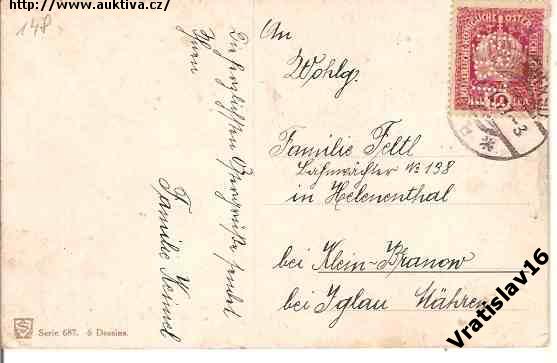 http://www.auktiva.cz/
148
Die herzlichsten Ostergrüße sendet
Ihnen
Familie
An
Wohlg.
Familie Feltl
Bahnwächter № 138
in Helenenthal
bei Klein-Branow
bei Iglau Mähren
Serie 687. 6 Dessins.
Vratislav16